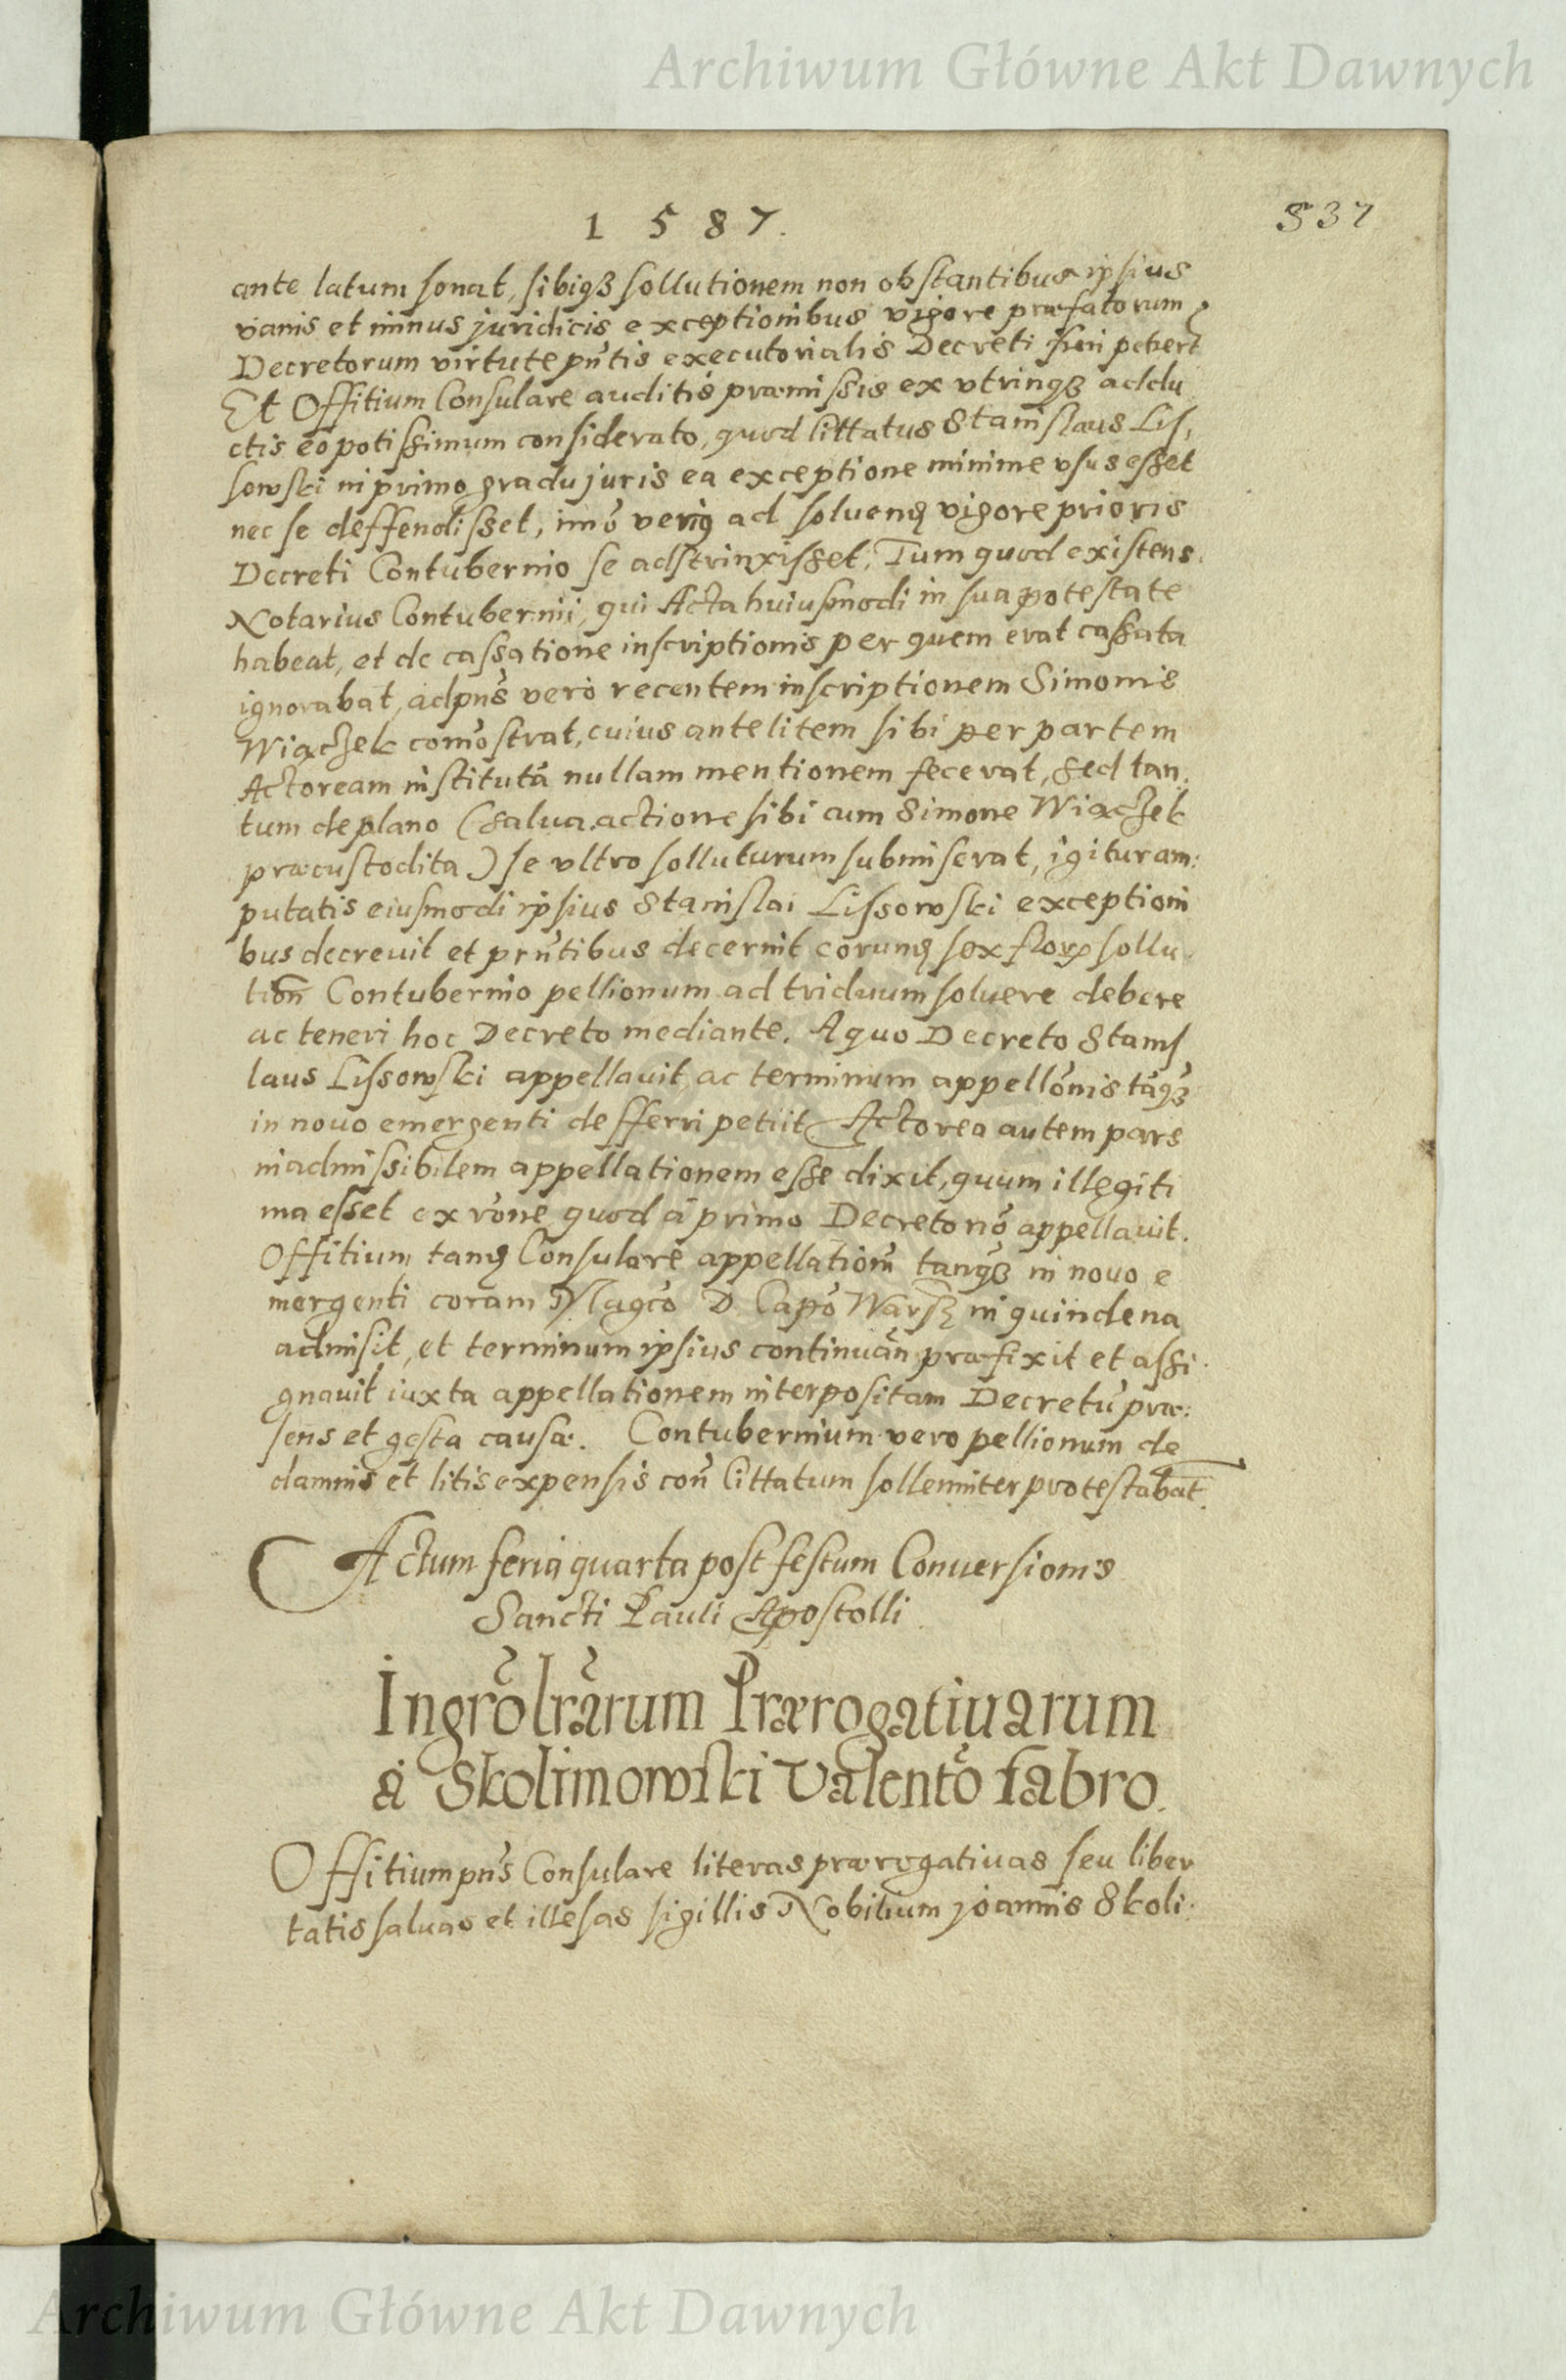 Archiwum Główne Akt Dawnych
1587.
537
ante latum sonat, sibiqꝫ sollutionem non obstantibus ipsius
vanis et minus juridicis exceptionibus vigore præfatorum
Decretorum virtute pn̄tis executorialis Decreti fieri petiert
Et Offitium Consulare auditis præmissis ex vtrinqꝫ addu
ctis eo potissimum considerato, quod littatus Stanislaus Lis,
sowski in primo gradu juris ea exceptione minime vsus esset
nec se deffendisset, imō veriꝰ ad soluenꝫ vigore prioris
Decreti Contubernio se adstrinxisset, Tum quod existens
Notarius Contubernii, qui Acta huiusmodi in sua potestate
habeat, et de cassatione inscriptionis per quem erat cassata
ignorabat, ad pn̄s vero recentem inscriptionem Simonis
Wiączek comōstrat, cuius ante litem sibi per partem
Actoream institutā nullam mentionem fecerat, sed tan,
tum de plano (salua actione sibi cum Simone Wiączek
præcustodita) se vltro solluturum submiserat, igitur am:
putatis eiusmodi ipsius Stanislai Lissowski exceptioni
bus decreuit et prn̄tibus decernit eorunꝫ sex floꝝ sollu
tion̄ Contubernio pellionum ad triduum soluere debere
ac teneri hoc Decreto mediante. A quo Decreto Stanis
laus Lissowski appellauit, ac terminum appellōnis tāqꝫ
in nouo emergenti defferri petiit Actorea autem pars
inadmissibilem appellationem esse dixit, quum illegiti
ma esset ex rōne quod à primo Decreto nō appellauit.
Offitium tanꝫ Consulare appellationē tanqꝫ in nouo e
mergenti coram Magco D. Capō Warsꝫ in quindena
admisit, et terminum ipsius continuān præfixit et assi
gnauit iuxta appellationem interpositam Decretū præ:
sens et gesta causæ. Contubernium vero pellionum de
damnis et litis expensis con̄ Cittatum sollemniter protestabāt.
Actum feria quarta post festum Conuersionis
Sancti Pauli Apostolli
Ingrō lrārum Prærogatiuarum
à Skolimowski Valentō fabro.
Offitium pn̄s Consulare literas prærogatiuas seu liber
tatis saluas et illesas sigillis Nobilium Joannis Skoli:
Archiwum Główne Akt Dawnych